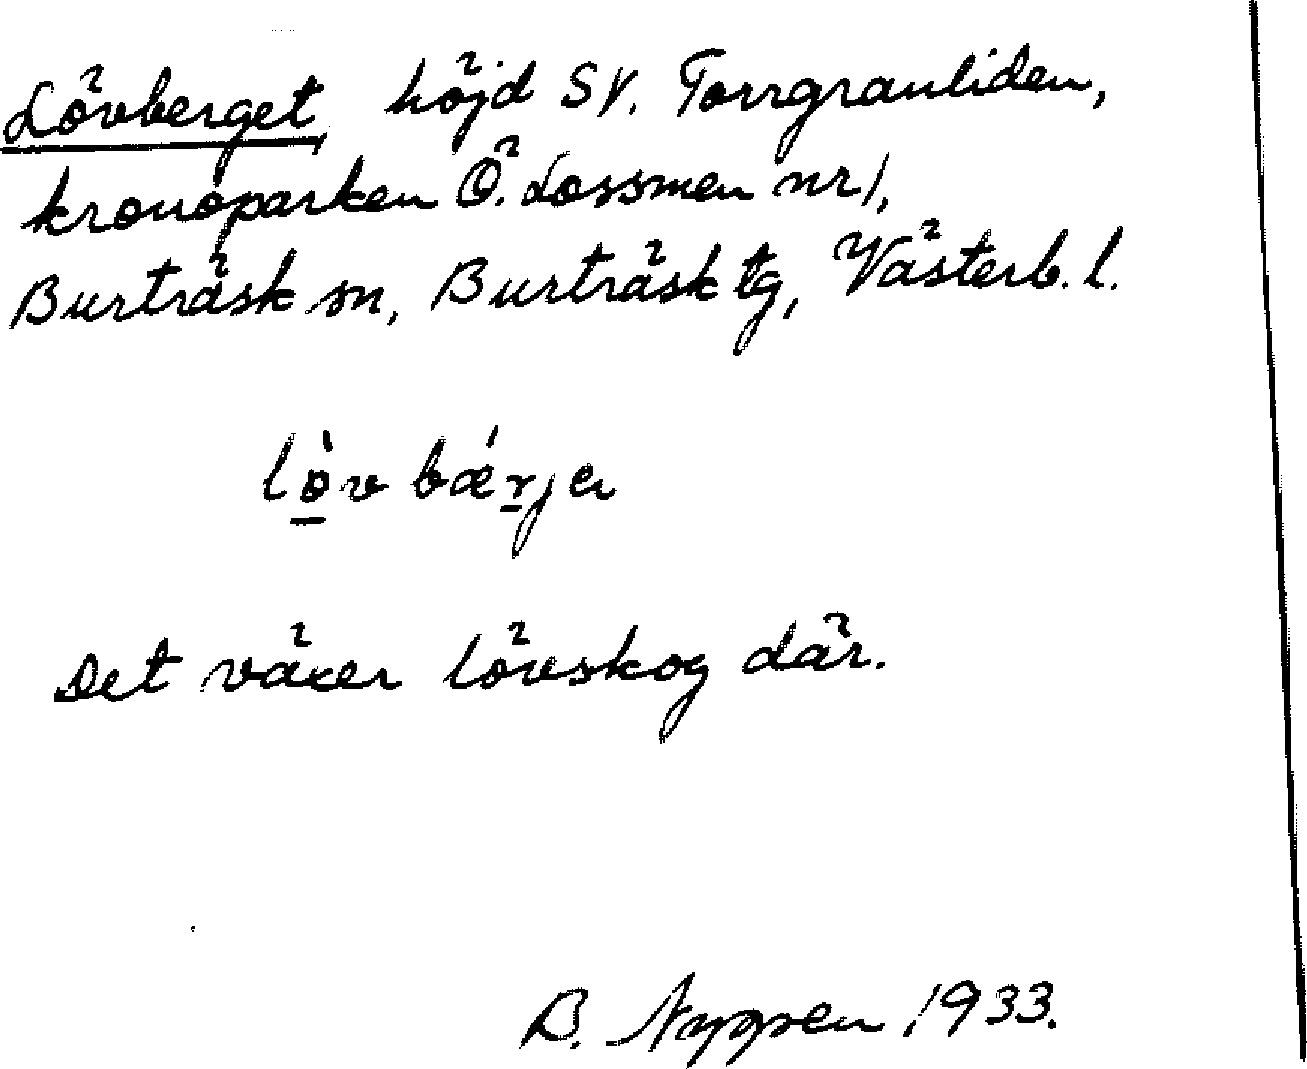 Lövberget, höjd SV. Torrgranliden,
kronoparken Ö. Lossmen nr 1,
Burträsk sn, Burträsk tg, Västerb. l.
lò̱v bǽṟja
Det växer lövskog där.
B. Nygren 1933.